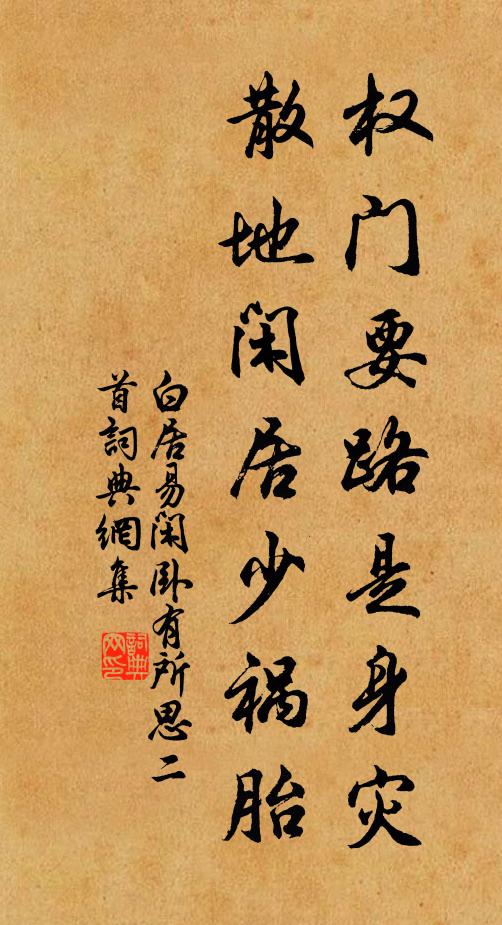 权门要路是身灾
散地闲居少祸胎
白居易闲卧有所思二
首詞典網集
詞典
网印